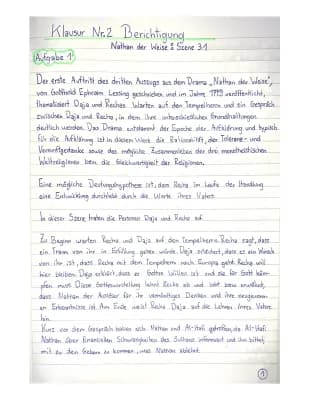 Klausur Nr.2 Berichtigung
Nathan der Weise: Szene 3.1
Aufgabe 1
Der erste Auftritt des dritten Aufzugs aus dem Drama „Nathan der Weise",
von Gotthold Ephraim Lessing geschrieben und im Jahre 1779 veröffentlicht,
thematisiert Daja und Rechas Warten auf den Tempelherrn und ein Gespräch
zwischen Daja und Recha, in dem ihre unterschiedlichen Grundhaltungen
deutlich werden. Das Drama entstammt der Epoche der Aufklärung und typisch
für die Aufklärung ist in diesem Werk die Rationalität, der Toleranz- und
Vernunftgedanke sowie das mögliche Zusammenleben der drei monotheistischen
Weltreligionen bzw. die Gleichwertigkeit der Religionen.
Eine mögliche Deutungshypothese ist, dass Recha im Laufe der Handlung
eine Entwicklung durchlebt durch die Worte ihres Vaters.
In dieser Szene treten die Personen Daja und Recha auf.
Zu Beginn warten Recha und Daja auf den Tempelherrn. Recha sagt, dass
ein Traum von ihr in Erfüllung gehen würde. Daja erwidert, dass es ein Wunsch
von ihr ist, dass Recha mit dem Tempelherrn nach Europa geht. Recha will
hier bleiben. Daja erklärt, dass es Gottes Willen ist und sie für Gott käm-
pfen muss. Diese Gottesvorstellung lehnt Recha ab und
dass Nathan der Auslöser für ihr vernünftiges Denken und ihre
Erkenntnisse ist. Am Ende weist Recha Daja auf die Lehren ihres Vaters
hin.
Kurz vor dem Gespräch haben sich Nathan und Al-Hafi getroffen, da Al-Hafi
Nathan über finanziellen Schwierigkeiten des Sultans informiert und ihn bittet,
mit zu dem Gebern zu kommen, was Nathan ablehnt.
1